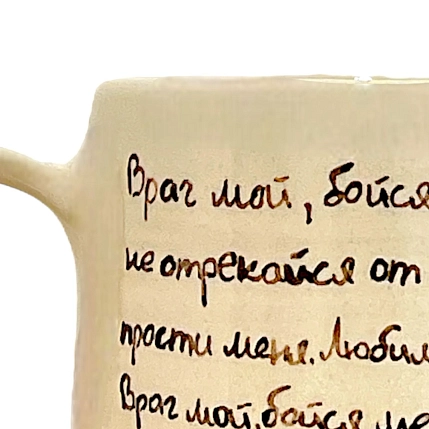 Враг мой, бойся
не отрекайся от
прости меня. Любим
Враг мой, бойся ме